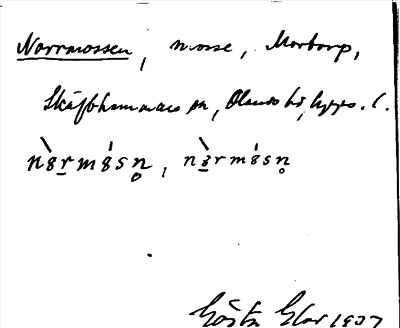 Norrmossen, mosse, Mortorp,
Skäfthammars sn, Olands hd, Upps. l.
n8̀r̲m8́sn̥, n8̲̀rm8́sn̥
Gösta Elar 1937